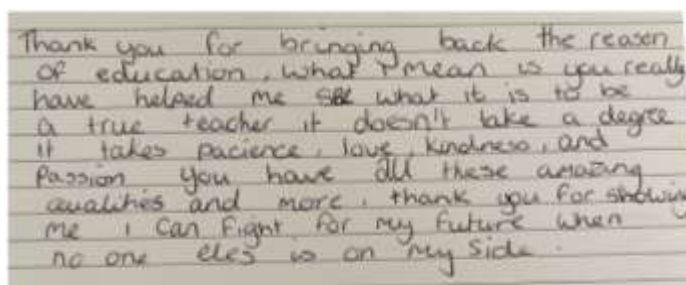 Thank you for bringing back the reason
of education, what i mean is you really
have helped me see what it is to be
a true teacher it doesn't take a degree
it takes pacience, love, kindness, and
Passion you have all these amazing
qualities and more, thank you for showing
me i can fight for my future when
no one eles is on my side.